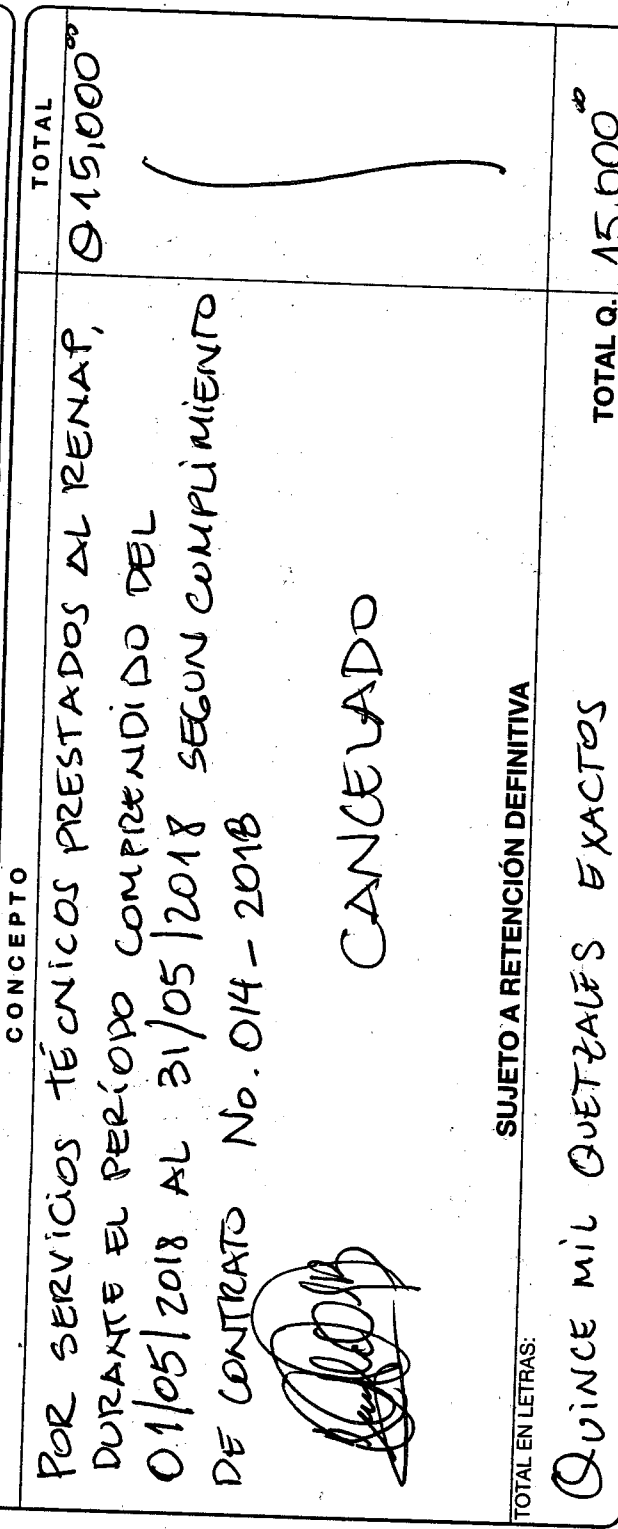 CONCEPTO TOTAL
POR SERVICIOS TÉCNICOS PRESTADOS AL RENAP, Q15,000.00
DURANTE EL PERÍODO COMPRENDIDO DEL
01/05/2018 AL 31/05/2018 SEGUN CUMPLIMIENTO
DE CONTRATO No. 014-2018
CANCELADO
SUJETO A RETENCIÓN DEFINITIVA
TOTAL EN LETRAS: TOTAL Q. 15,000.00
QUINCE MIL QUETZALES EXACTOS